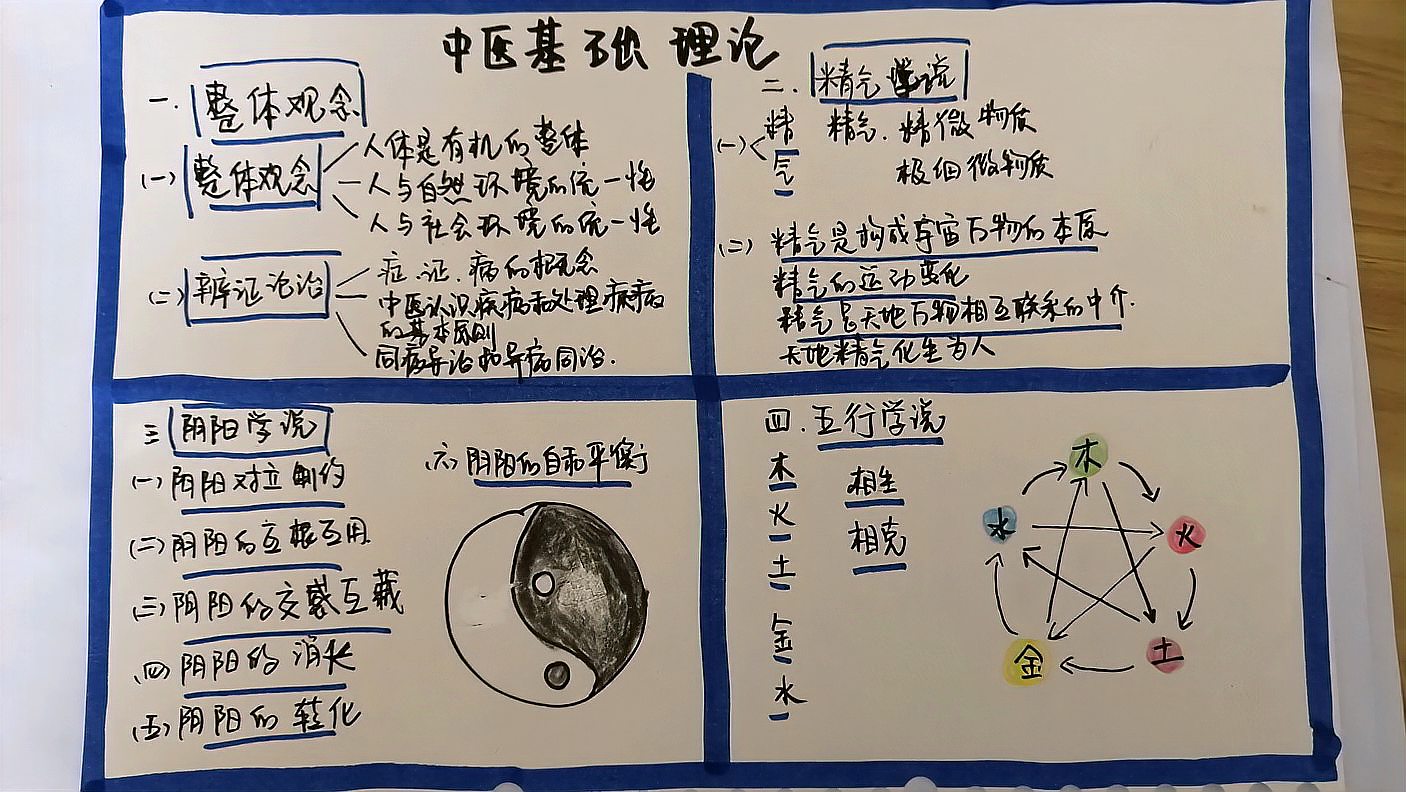 中医基础理论
一. 整体观念
(一) 整体观念
人体是有机的整体
人与自然环境的统一性
人与社会环境的统一性
(二) 辨证论治
症.证.病的概念
中医认识疾病和处理疾病
的基本原则
同病异治和异病同治.
二. 精气学说
(一) 精 精气.精微物质
气 极细微物质
(二) 精气是构成宇宙万物的本原
精气的运动变化
精气是天地万物相互联系的中介.
天地精气化生为人
三 阴阳学说
(一) 阴阳对立制约
(二) 阴阳的互根互用
(三) 阴阳的交感互藏
(四) 阴阳的消长
(五) 阴阳的转化
(六) 阴阳的自和平衡
四. 五行学说
木
火
土
金
水
相生
相克
木
火
土
金
水